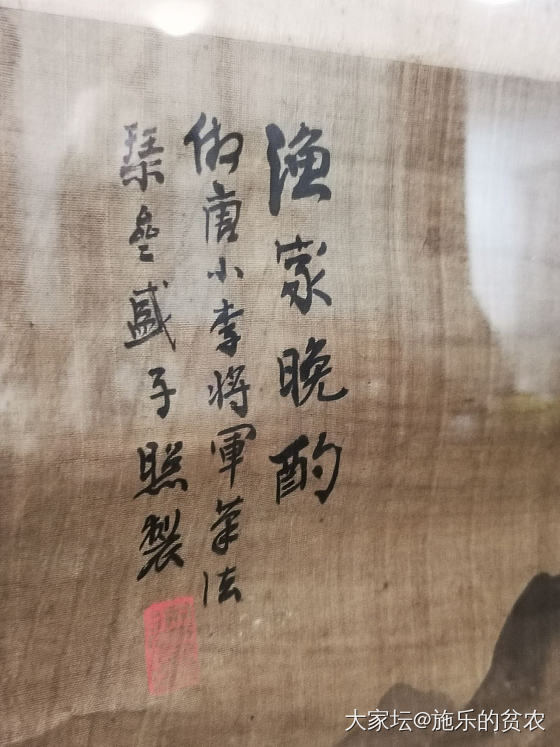 渔家晚酌
仿唐小李将軍筆法
盛子照製
大家坛@施乐的贫农